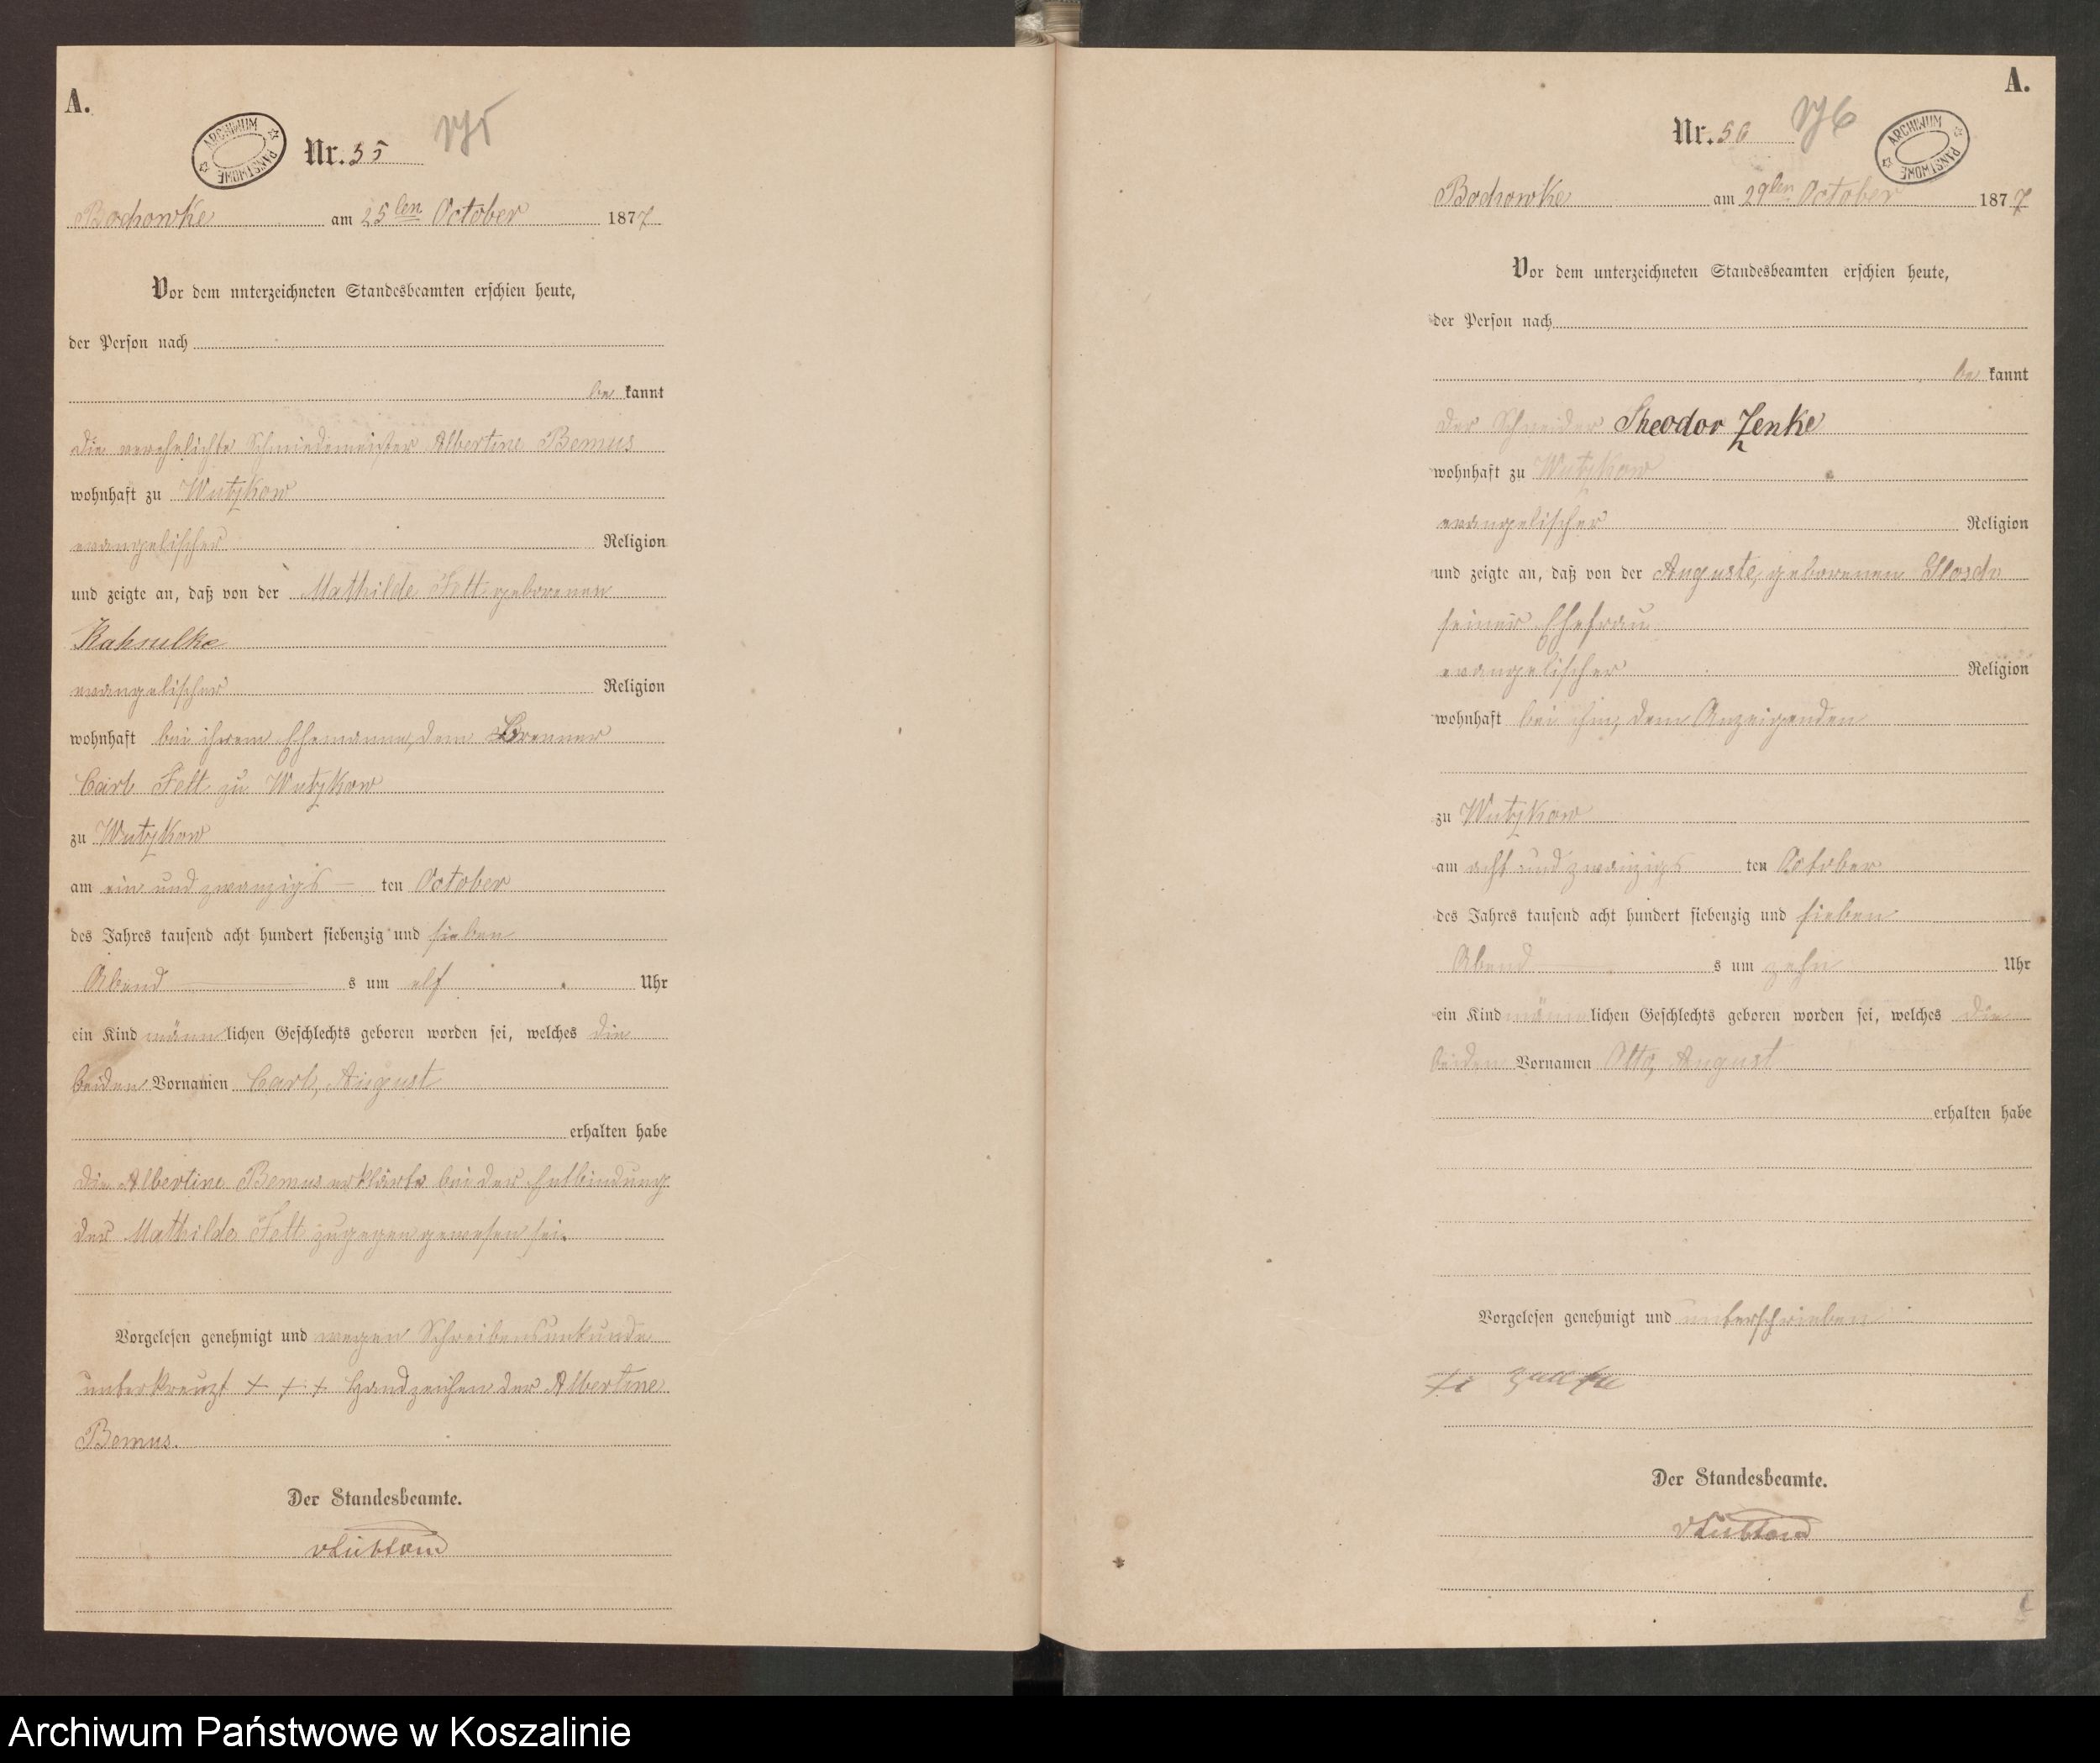 A.
ARCHIWUM PAŃSTWOWE
Nr. 55
Bochowke am 25ten October 1877
Vor dem unterzeichneten Standesbeamten erschien heute,
der Person nach
be kannt
die verehelichte Schmiedemeister Albertine Bemus
wohnhaft zu Wutzkow
evangelischer Religion
und zeigte an, daß von der Mathilde Fett geborenen
Kahnulke
evangelischer Religion
wohnhaft bei ihrem Ehemanne, dem Brenner
Carl Fett zu Wutzkow
zu Wutzkow
am ein und zwanzigs ten October
des Jahres tausend acht hundert siebenzig und sieben
Abend s um elf Uhr
ein Kind männlichen Geschlechts geboren worden sei, welches die
beiden Vornamen Carl, August
erhalten habe
die Albertine Bemus erklärte bei der Entbindung
der Mathilde Fett zugegen gewesen sei.
Vorgelesen genehmigt und wegen Schreibensunkunde
unterkreuzt + + + Handzeichen der Albertine
Bemus.
Der Standesbeamte.
A.
Nr. 56 76
ARCHIWUM PAŃSTWOWE
Bochowke am 29ten October 1877
Vor dem unterzeichneten Standesbeamten erschien heute,
der Person nach
be kannt
der Schneider Theodor Zenke
wohnhaft zu Wutzkow
evangelischer Religion
und zeigte an, daß von der Auguste, geborenen
seiner Ehefrau
evangelischer Religion
wohnhaft bei ihm, dem Anzeigenden
zu Wutzkow
am acht und zwanzigs ten October
des Jahres tausend acht hundert siebenzig und sieben
Abend s um zehn Uhr
ein Kind männlichen Geschlechts geboren worden sei, welches die
beiden Vornamen Otto, August
erhalten habe
Vorgelesen genehmigt und unterschrieben
Der Standesbeamte.
Archiwum Państwowe w Koszalinie